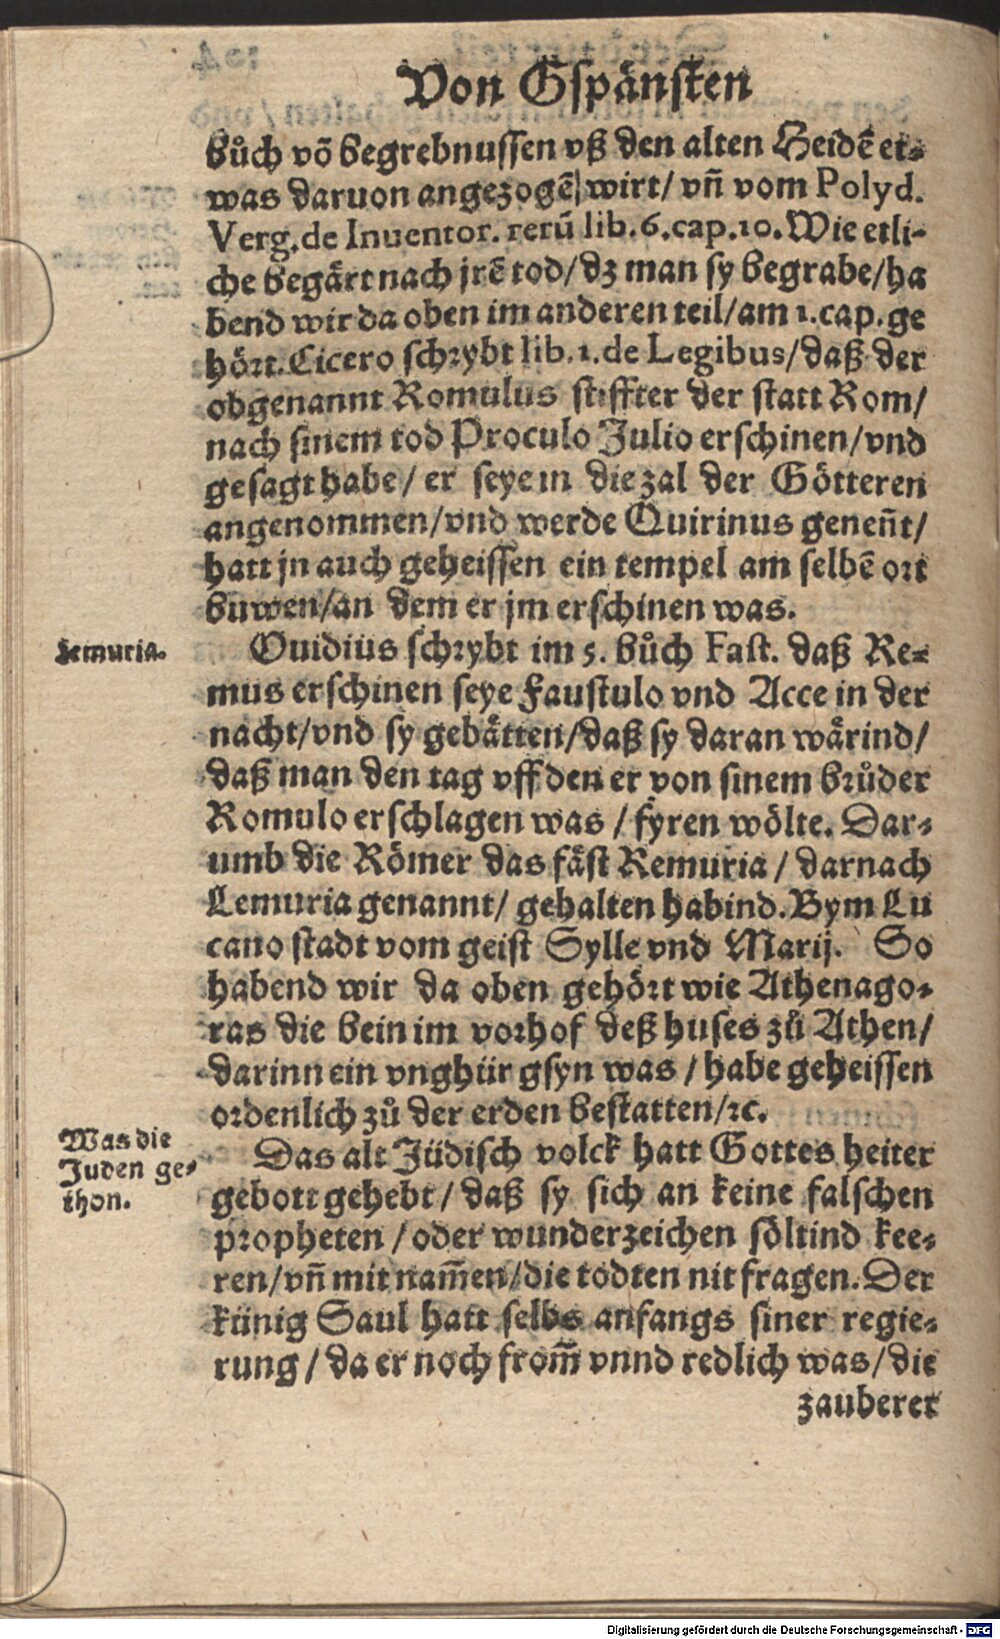 Von Gspänsten
bůch võ begrebnussen vß den alten Heidẽ et⸗
was daruon angezogẽ wirt/ vñ vom Polyd.
Verg. de Inuentor. rerũ lib. 6. cap. 10. Wie etli⸗
che begårt nach jrẽ tod/ dz man sy begrabe/ ha
bend wir da oben im anderen teil/ am 1. cap. ge
hôrt. Cicero schrybt lib. 1. de Legibus/ daß der
obgenannt Romulus stiffter der statt Rom/
nach sinem tod Proculo Julio erschinen/ vnd
gesagt habe/ er seye in die zal der Götteren
angenommen/ vnd werde Quirinus geneñt/
hatt jn auch geheissen ein tempel am selbẽ ort
buwen/ an dem er jm erschinen was.
Lemuria.
Ouidius schrybt im 5. bůch Fast. daß Re⸗
mus erschinen seye Faustulo vnd Acce in der
nacht/ vnd sy gebätten/ daß sy daran wårind/
daß man den tag vff den er von sinem brůder
Romulo erschlagen was/ fyren wölte. Dar⸗
umb die Römer das fäst Remuria/ darnach
Lemuria genannt/ gehalten habind. Bym Lu
cano stadt vom geist Sylle vnd Marij. So
habend wir da oben gehört wie Athenago⸗
ras die bein im vorhof deß huses zů Athen/
darinn ein vnghür gsyn was/ habe geheissen
ordenlich zů der erden bestatten/ ꝛc.
Was die
Juden ge⸗
thon.
Das alt Jüdisch volck hatt Gottes heiter
gebott gehebt/ daß sy sich an keine falschen
propheten/ oder wunderzeichen söltind kee⸗
ren/ vñ mit nam̃en/ die todten nit fragen. Der
künig Saul hatt selbs anfangs siner regie⸗
rung/ da er noch from̃ vnnd redlich was/ die
zauberer
Digitalisierung gefördert durch die Deutsche Forschungsgemeinschaft - DFG